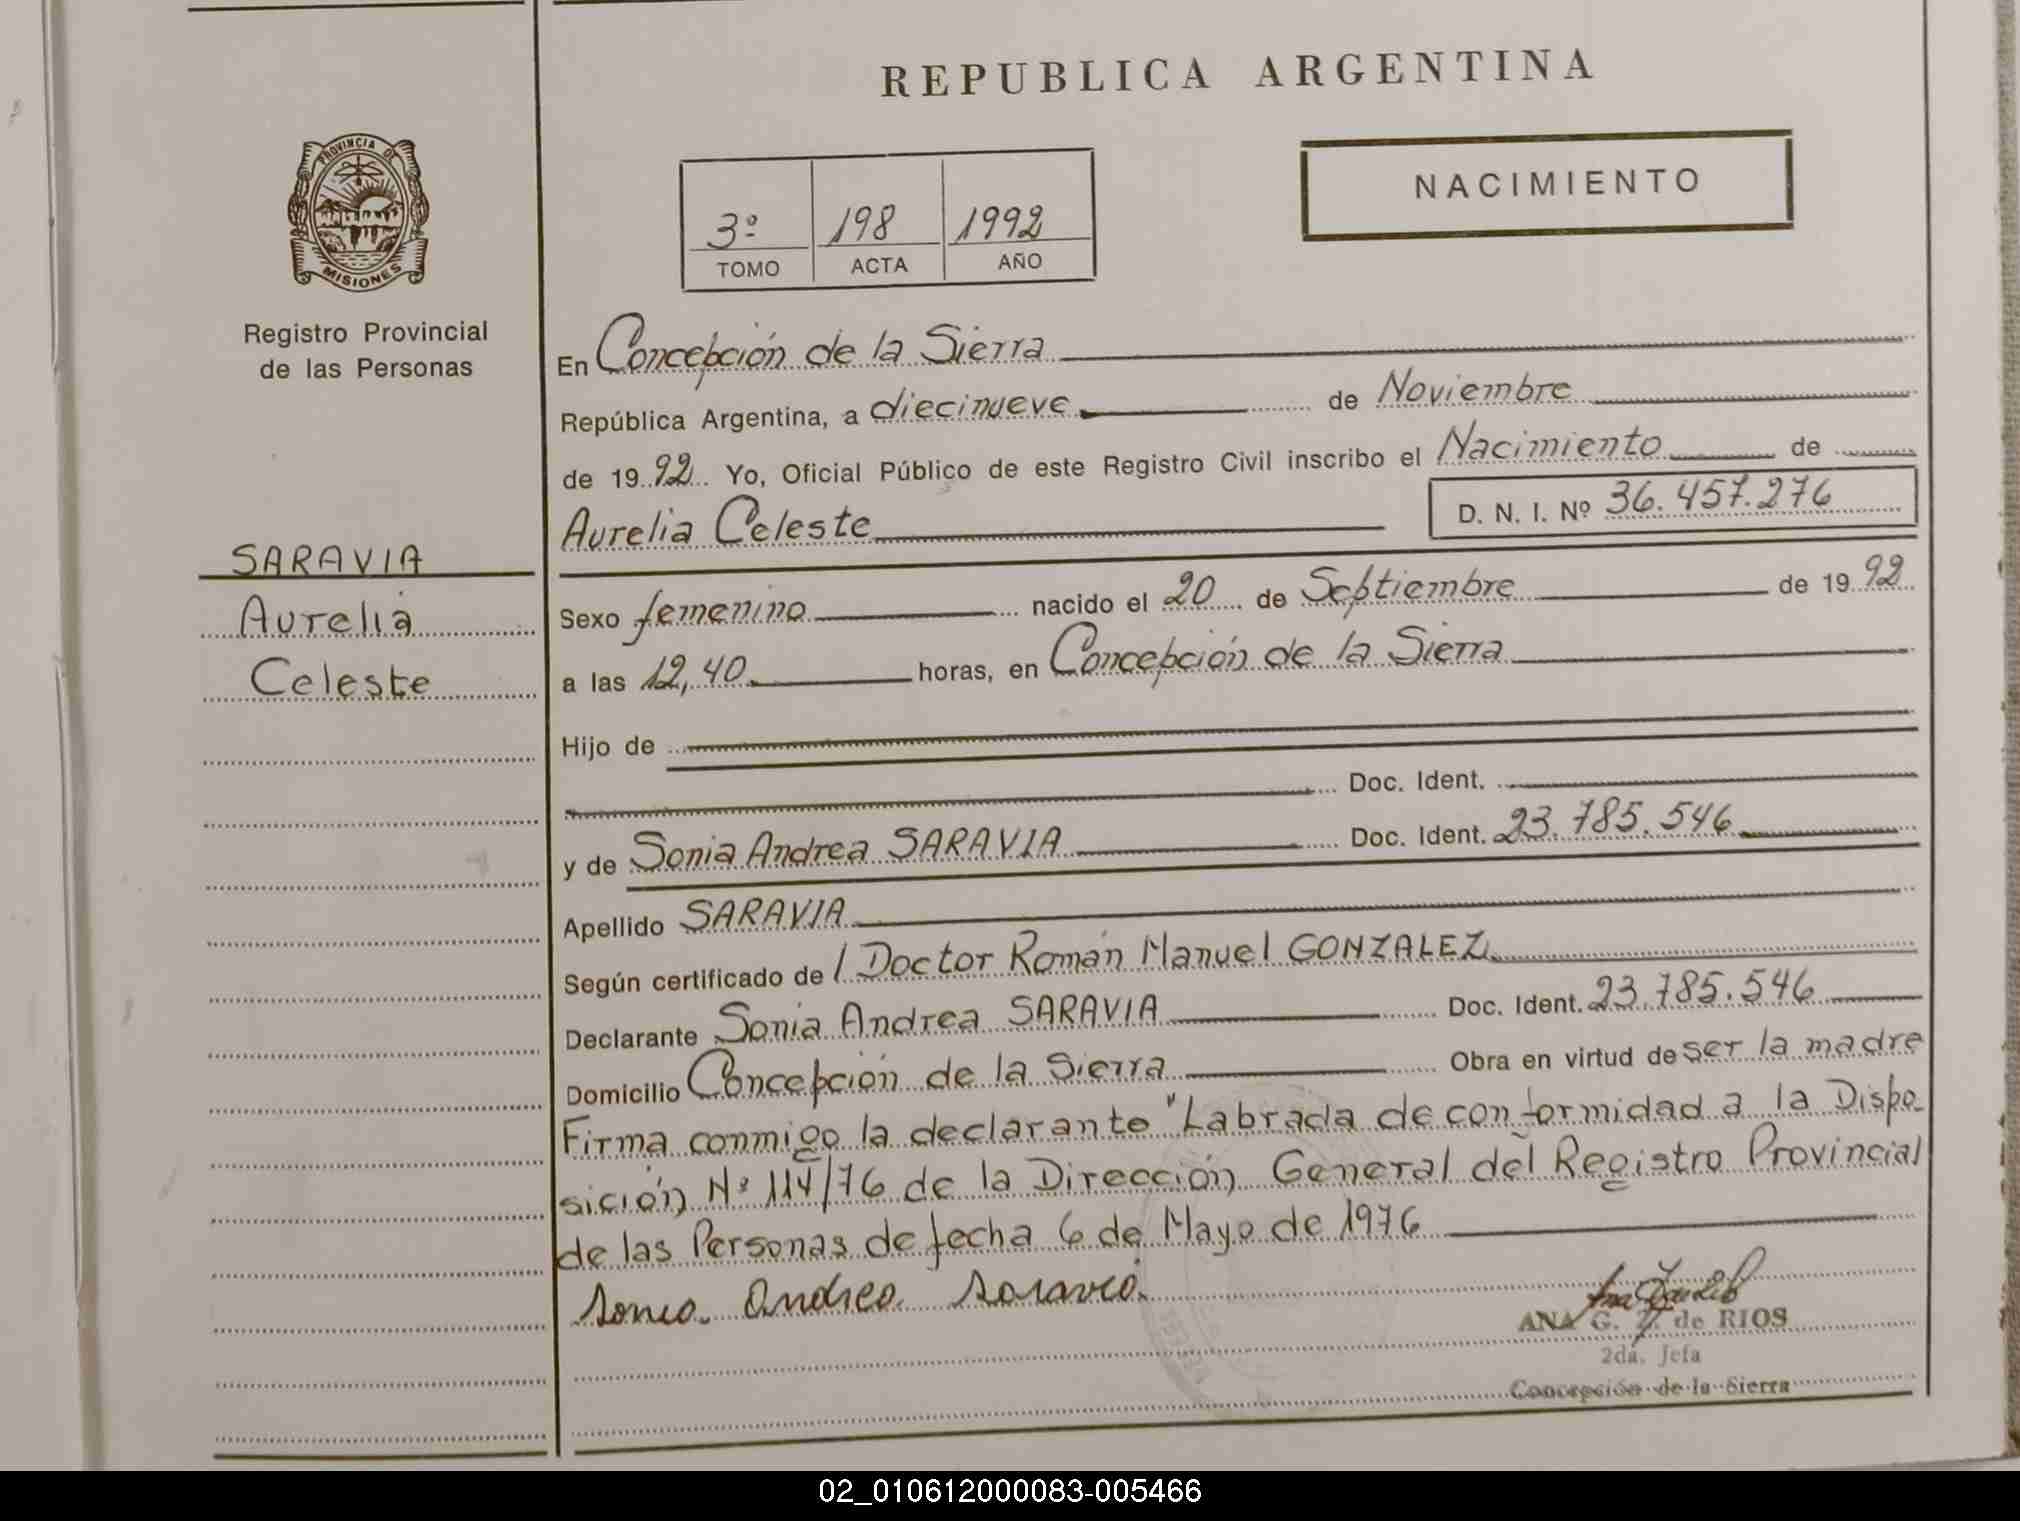 REPUBLICA ARGENTINA
PROVINCIA DE
MISIONES
Registro Provincial
de las Personas
3º 198 1992
TOMO ACTA AÑO
NACIMIENTO
En Concepción de la Sierra
República Argentina, a diecinueve de Noviembre
de 1992 Yo, Oficial Público de este Registro Civil inscribo el Nacimiento de
Aurelia Celeste D. N. I. Nº 36.457.276
SARAVIA
Aurelia
Celeste
Sexo femenino nacido el 20 de Septiembre de 1992
a las 12,40 horas, en Concepción de la Sierra
Hijo de
Doc. Ident.
y de Sonia Andrea SARAVIA Doc. Ident. 23.785.546
Apellido SARAVIA
Según certificado del Doctor Román Manuel GONZALEZ
Declarante Sonia Andrea SARAVIA Doc. Ident. 23.785.546
Domicilio Concepción de la Sierra Obra en virtud de ser la madre
Firma conmigo la declarante "Labrada de conformidad a la Dispo-
sición Nº 114/76 de la Dirección General del Registro Provincial
de las Personas de fecha 6 de Mayo de 1976
Sonia Andrea Saravia
ANA G. Z. de RIOS
2da. Jefa
Concepción de la Sierra
02_010612000083-005466